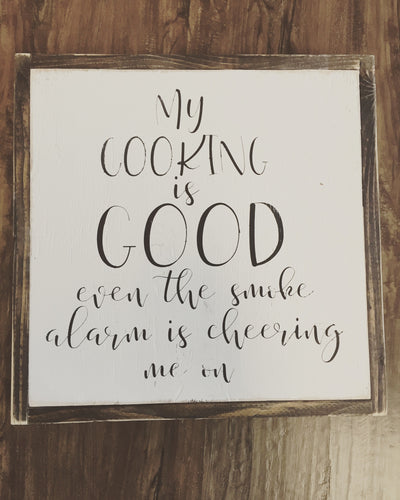 My
COOKING
is
GOOD
even the smoke
alarm is cheering
me on